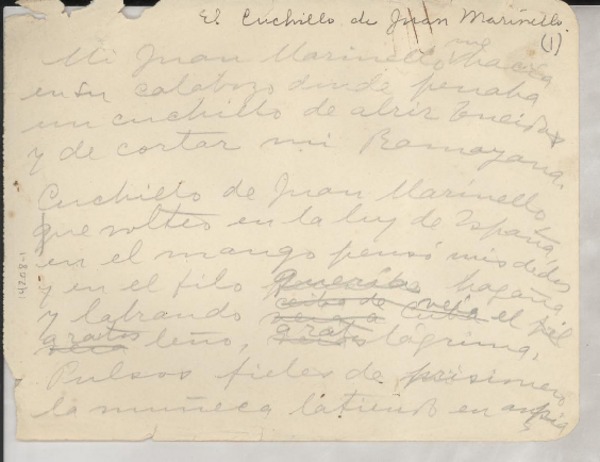 El Cuchillo de Juan Marinello.
(1)
Mi Juan Marinello me hacía
en su calabozo donde penaba
un cuchillo de abrir Eneidas
y de cortar mi Ramayana.
Cuchillo de Juan Marinello
que volteo en la luz de España,
en el mango pensó mis dedos
y en el filo hazaña
y labrando el fiel
leño, lágrima,
Pulsos fieles de prisionero
la muñeca latiendo en ansia
14208-1